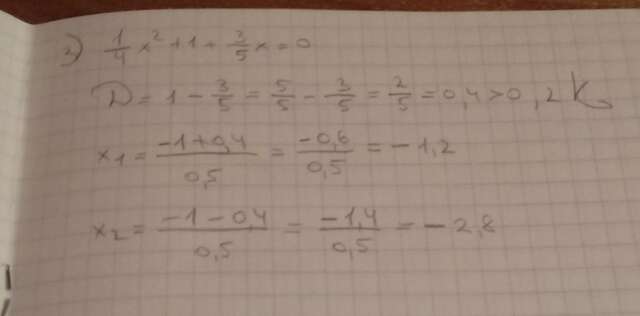 3) 1/4 x² + 1 + 3/5 x = 0
D = 1 - 3/5 = 5/5 - 3/5 = 2/5 = 0,4 > 0, 2 K
x₁ = -1+0,4/0,5 = -0,6/0,5 = -1,2
x₂ = -1-0,4/0,5 = -1,4/0,5 = -2,8